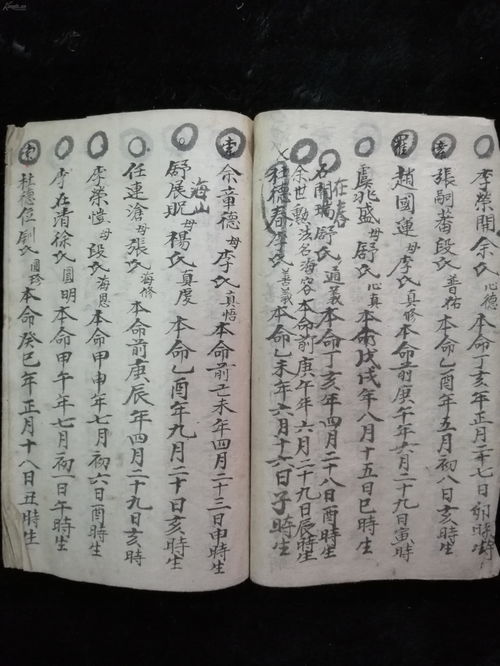 李榮開余氏心德本命正月二十七日卯時
張嗣蕃段氏普祐本命乙酉年五月初八日亥時生
羅
趙國運母李氏真修本命前庚午年六月二十九日寅時
虞兆盛母舒氏心真本命戊戌年八月十五日巳時生
在春
石開瑞舒氏道義本命丁亥年四月二十八日酉時生
余世勳法名海容本命前庚午年六月二十九日辰時生
杜德春李氏善義本命乙未年六月十六日子時生
余章德母李氏真悟本命前己未年四月二十三日申時生
海山
舒展昵母楊氏真虔本命乙酉年九月二十日亥時生
任連滄母張氏海修本命前庚辰年四月二十九日亥時
李榮愷母段氏海恩本命甲申年七月初六日酉時生
李在清徐氏圓明本命甲午年七月初一日午時生
杜德位劉氏圓珍本命癸巳年正月十八日丑時生